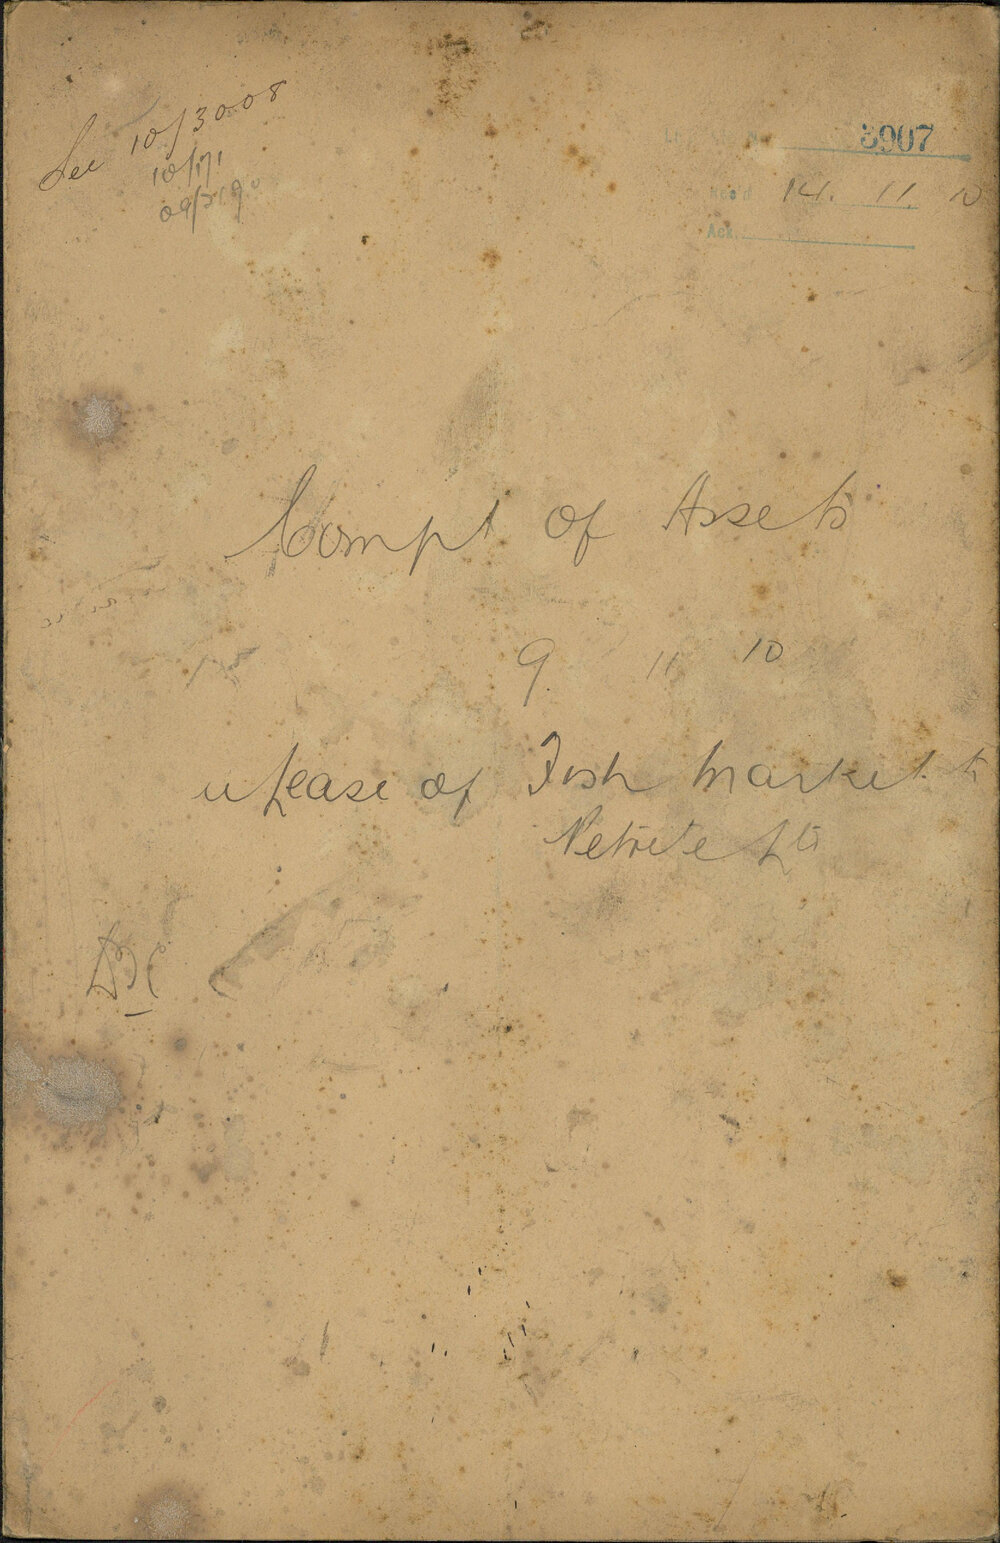 See 10/3008
10/171
09/219
3907
Rec'd 14. 11. 10
Ack.
Compt of Assets
9. 11 10
Lease of Fish Market to
Netrite Ld